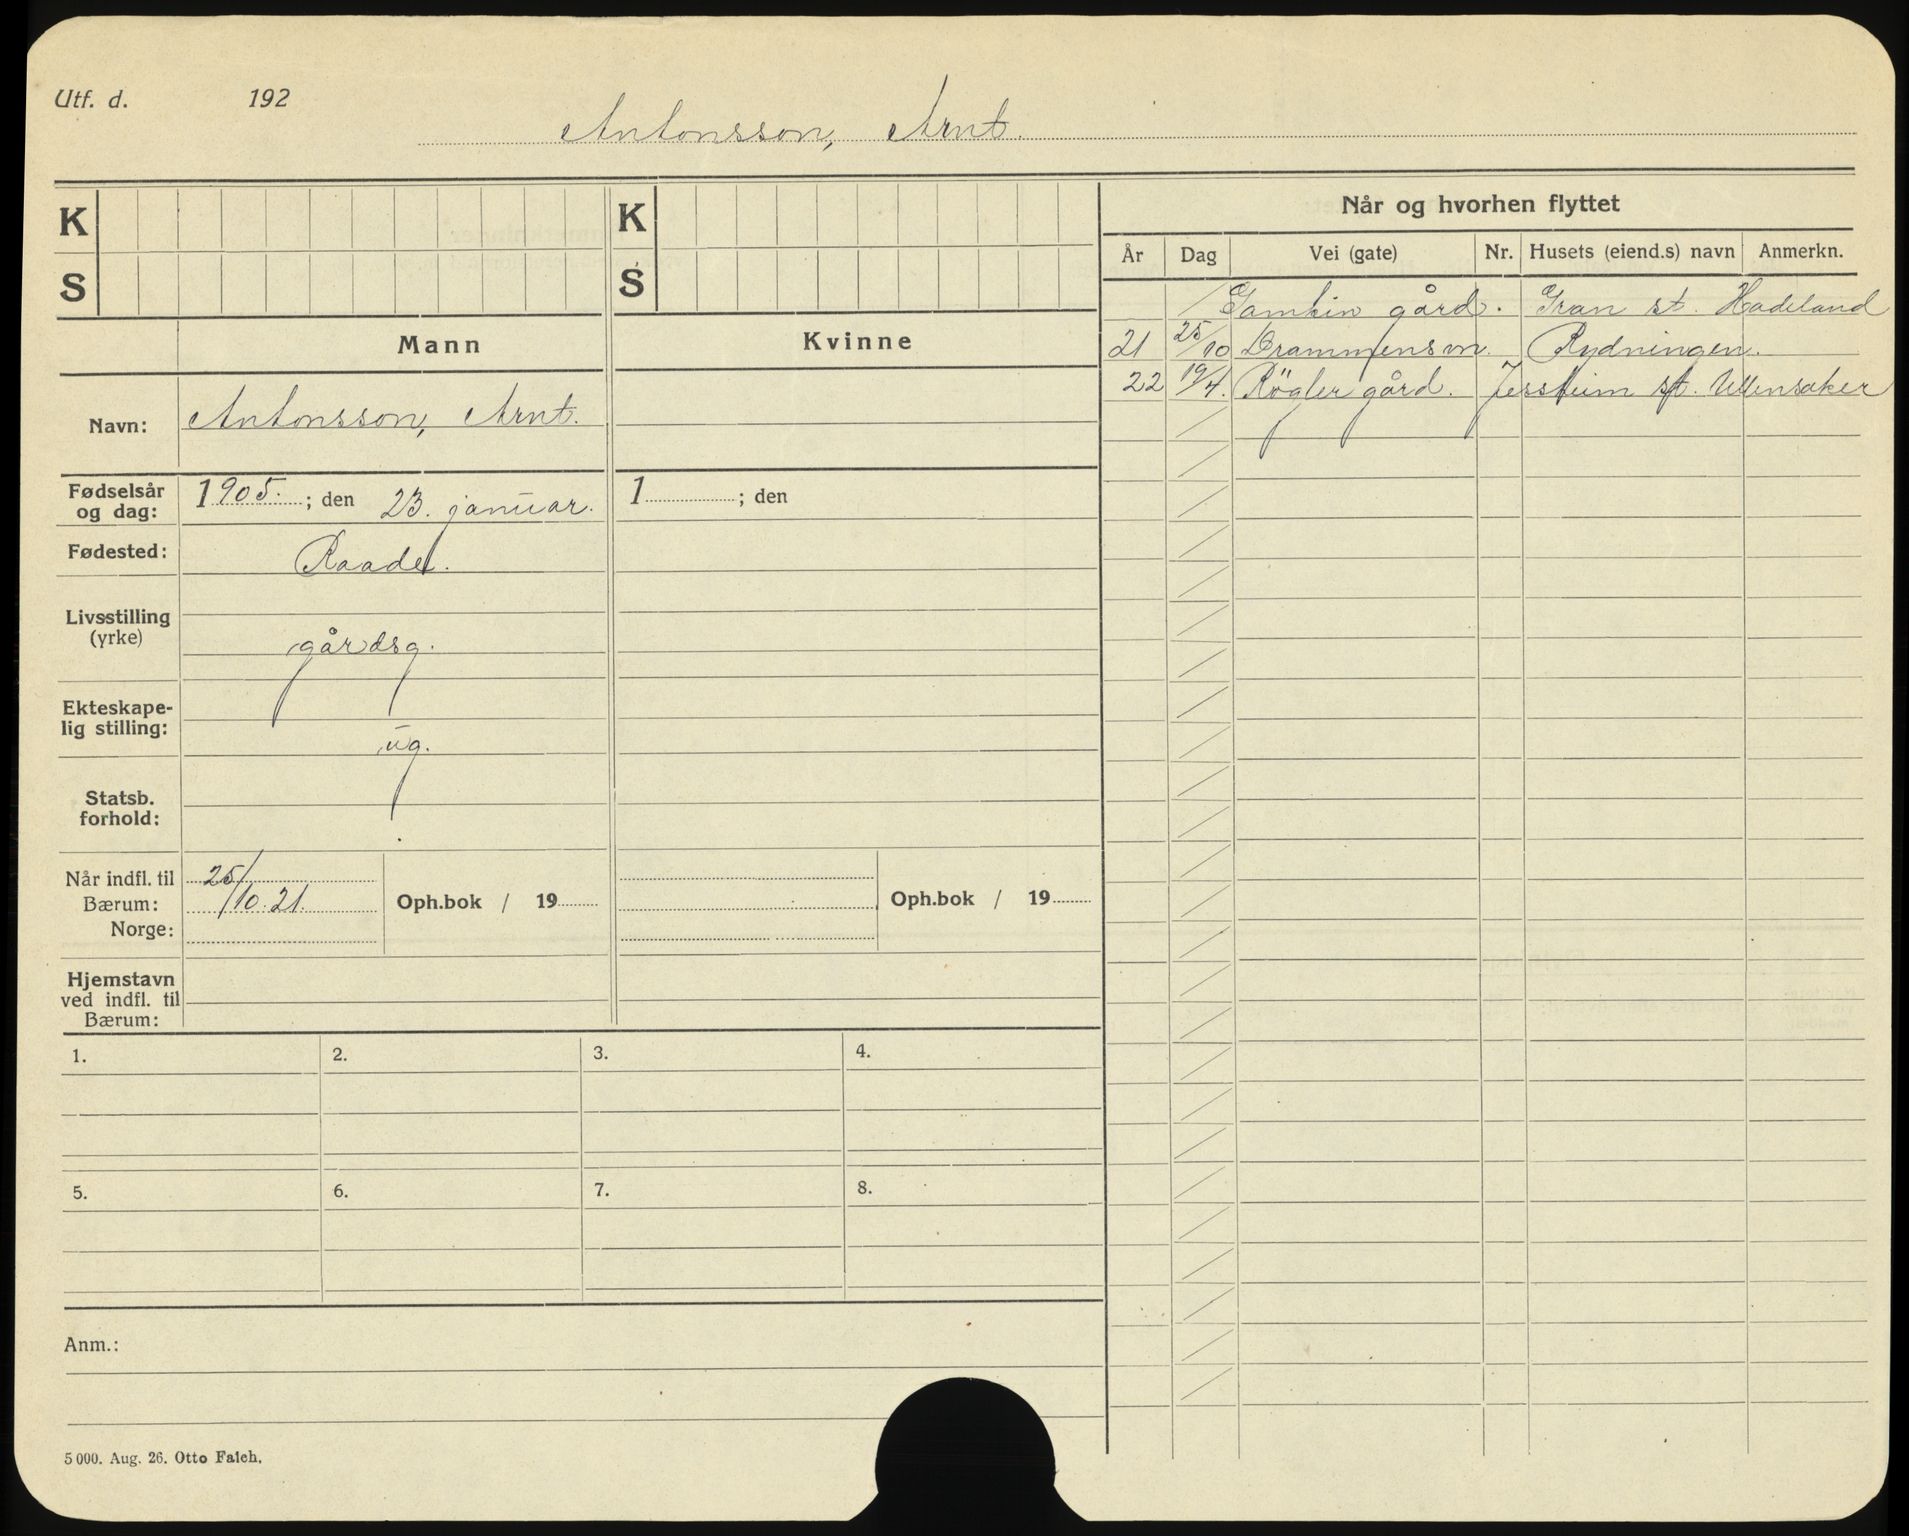 Utf. d. 192
Antonsson, Arnt.
K K
S S
Mann Kvinne
Navn: Antonsson, Arnt.
Fødselsår og dag: 1905. ; den 23. januar. 1 ; den
Fødested: Raade.
Livsstilling (yrke) gårdsg.
Ekteskape-
lig stilling: ug.
Statsb.
forhold:
Når indfl. til 25/
Bærum: /10.21. Oph.bok / 19 Oph.bok / 19
Norge:
Hjemstavn
ved indfl. til
Bærum:
1. 2. 3. 4.
5. 6. 7. 8.
Anm.:
5 000. Aug. 26. Otto Falch.
Når og hvorhen flyttet
År Dag Vei (gate) Nr. Husets (eiend.s) navn Anmerkn.
/ gård. Gran st. Hadeland
21 25/10 Drammensvn. Rydningen.
22 19/4. Røgler gård. Jessheim st. Ullensaker